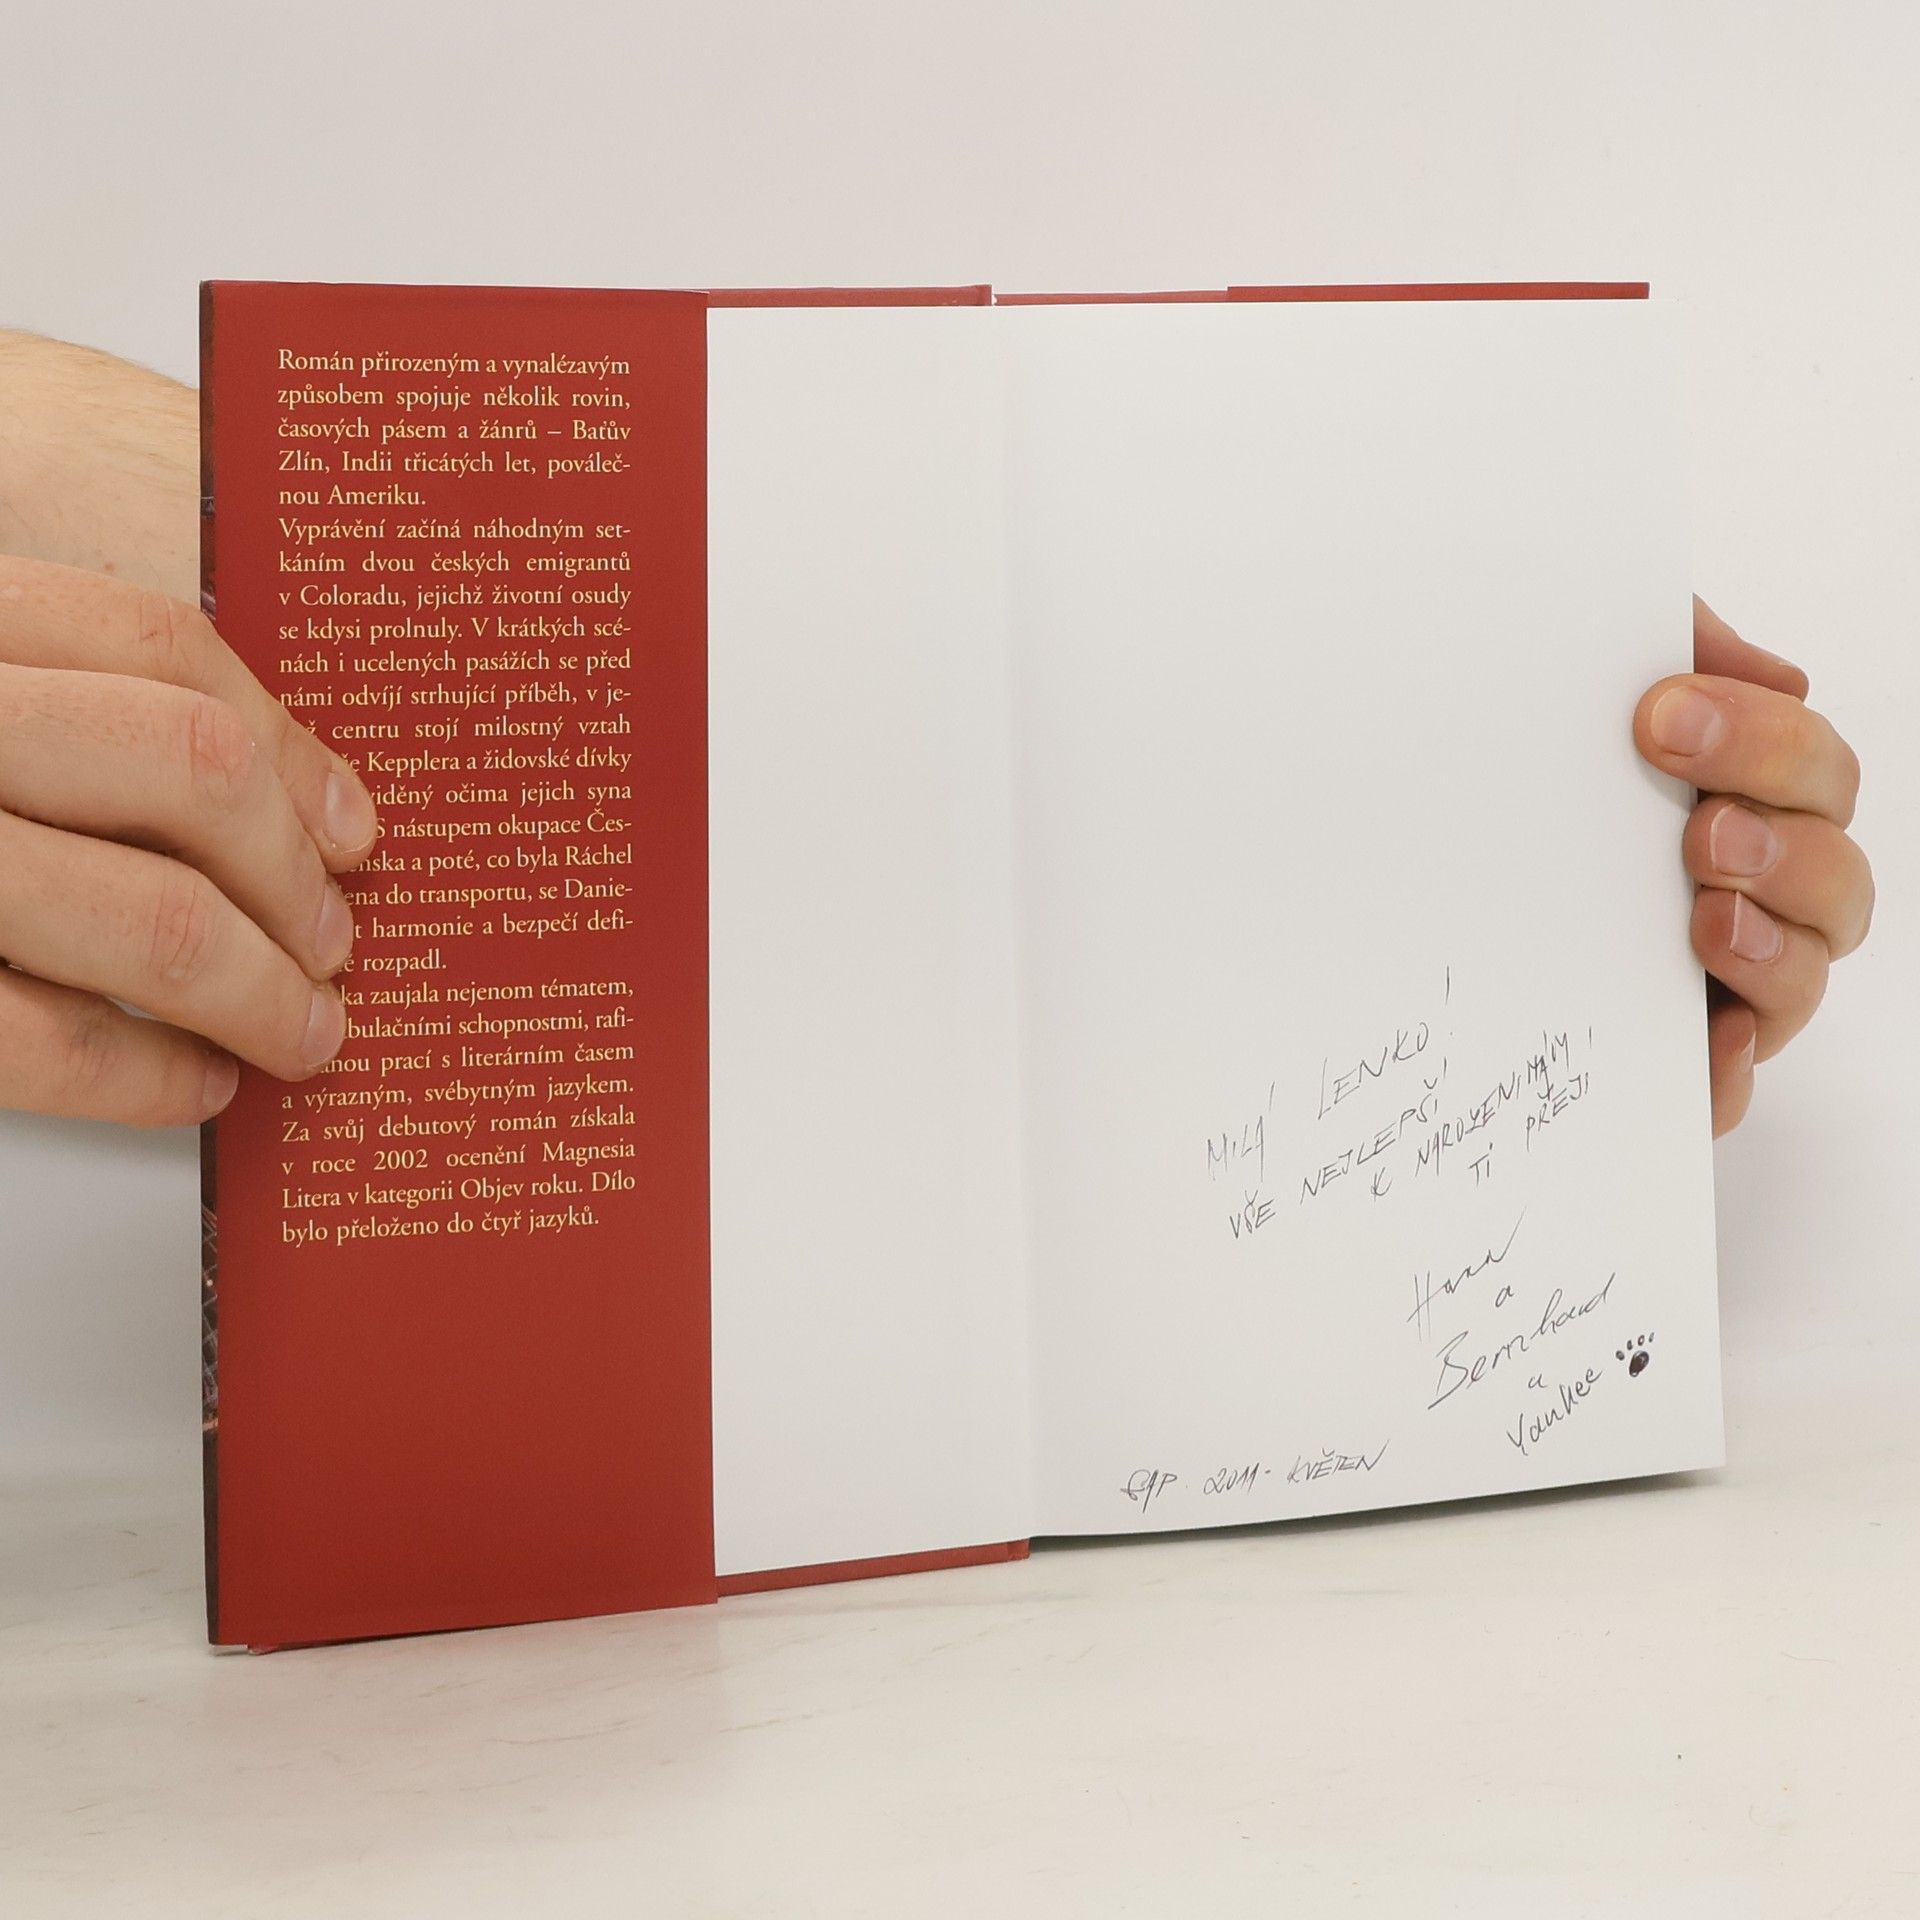 Román přirozeným a vynalézavým
způsobem spojuje několik rovin,
časových pásem a žánrů – Baťův
Zlín, Indii třicátých let, pováleč-
nou Ameriku.
Vyprávění začíná náhodným set-
káním dvou českých emigrantů
v Coloradu, jejichž životní osudy
se kdysi prolnuly. V krátkých scé-
nách i ucelených pasážích se před
námi odvíjí strhující příběh, v je-
ž centru stojí milostný vztah
Kepplera a židovské dívky
viděný očima jejich syna
S nástupem okupace Čes-
nska a poté, co byla Ráchel
ena do transportu, se Danie-
t harmonie a bezpečí defi-
ě rozpadl.
ka zaujala nejenom tématem,
bulačními schopnostmi, rafi-
anou prací s literárním časem
a výrazným, svébytným jazykem.
Za svůj debutový román získala
v roce 2002 ocenění Magnesia
Litera v kategorii Objev roku. Dílo
bylo přeloženo do čtyř jazyků.
MILÁ LENKO!
VŠE NEJLEPŠÍ!
K NAROZENINÁM!
TI PŘEJÍ
Hana
a
Bernhard
a
Yankee
2011 - KVĚTEN